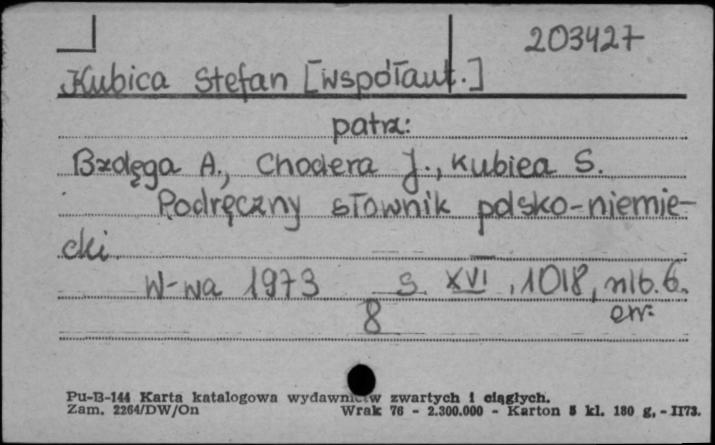 203427
Kubica Stefan [współaut.]
patrz:
Bzdęga A., Chodera J., Kubica S.
Podręczny słownik polsko-niemie-
cki.
W-wa 1973 s. XVI, 1018, nlb. 6.
8 err.
Pu-B-144 Karta katalogowa wydawnictw zwartych i ciągłych.
Zam. 2264/DW/On Wrak 76 - 2.300.000 - Karton 5 kl. 180 g, - II73.